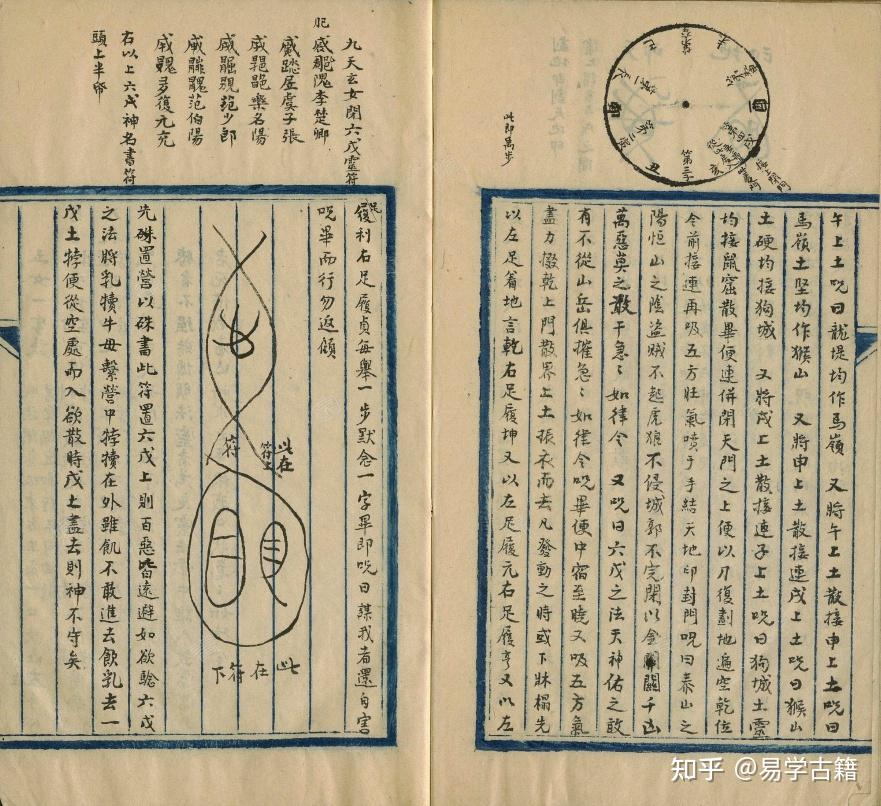 午上土咒曰龍堤均作馬嶺　又將午上土散接申上土咒曰
馬嶺土堅均作猴山　又將申上土散接連戌上土咒曰猴山
土硬均接狗城　又將戌上土散接連子上土咒曰狗城土靈
均接鼠窟散畢便連併閉天門之上便以刀復劃地遍空乾位
令前接連再吸五方旺氣噴于手結天地印封門咒曰泰山之
陽恒山之陰盜賊不起虎狼不侵城郭不完閉以金關千凶
萬惡莫之敢干急〻如律令　又咒曰六戊之法天神佑之敢
有不從山岳俱摧急〻如律令咒畢便中宿至曉又吸五方氣
盡力掇乾上門散界上土張衣而去凡發動之時或下牀榻先
以左足着地言乾右足履坤又以左足履元右足履亨又以左
此即禹步
第三
丑
亥
九天玄女閉六戊靈符
李楚卿
虞子張
樂名陽
范少郎
范伯陽
復元充
右以上六戊神名書符
頭上半帋
足
履利右足履貞每舉一步默念一字畢即咒曰謀我者還自害
咒畢而行勿返顧
此在
符上
符
此在符下
先硃置營以硃書此符置六戊上則百惡皆遠避如欲驗六戊
之法將乳犢牛母繫營中犢在外雖飢不敢進去飲乳去一
戊土犢便從空處而入欲散時戊土盡去則神不守矣
知乎 @易学古籍